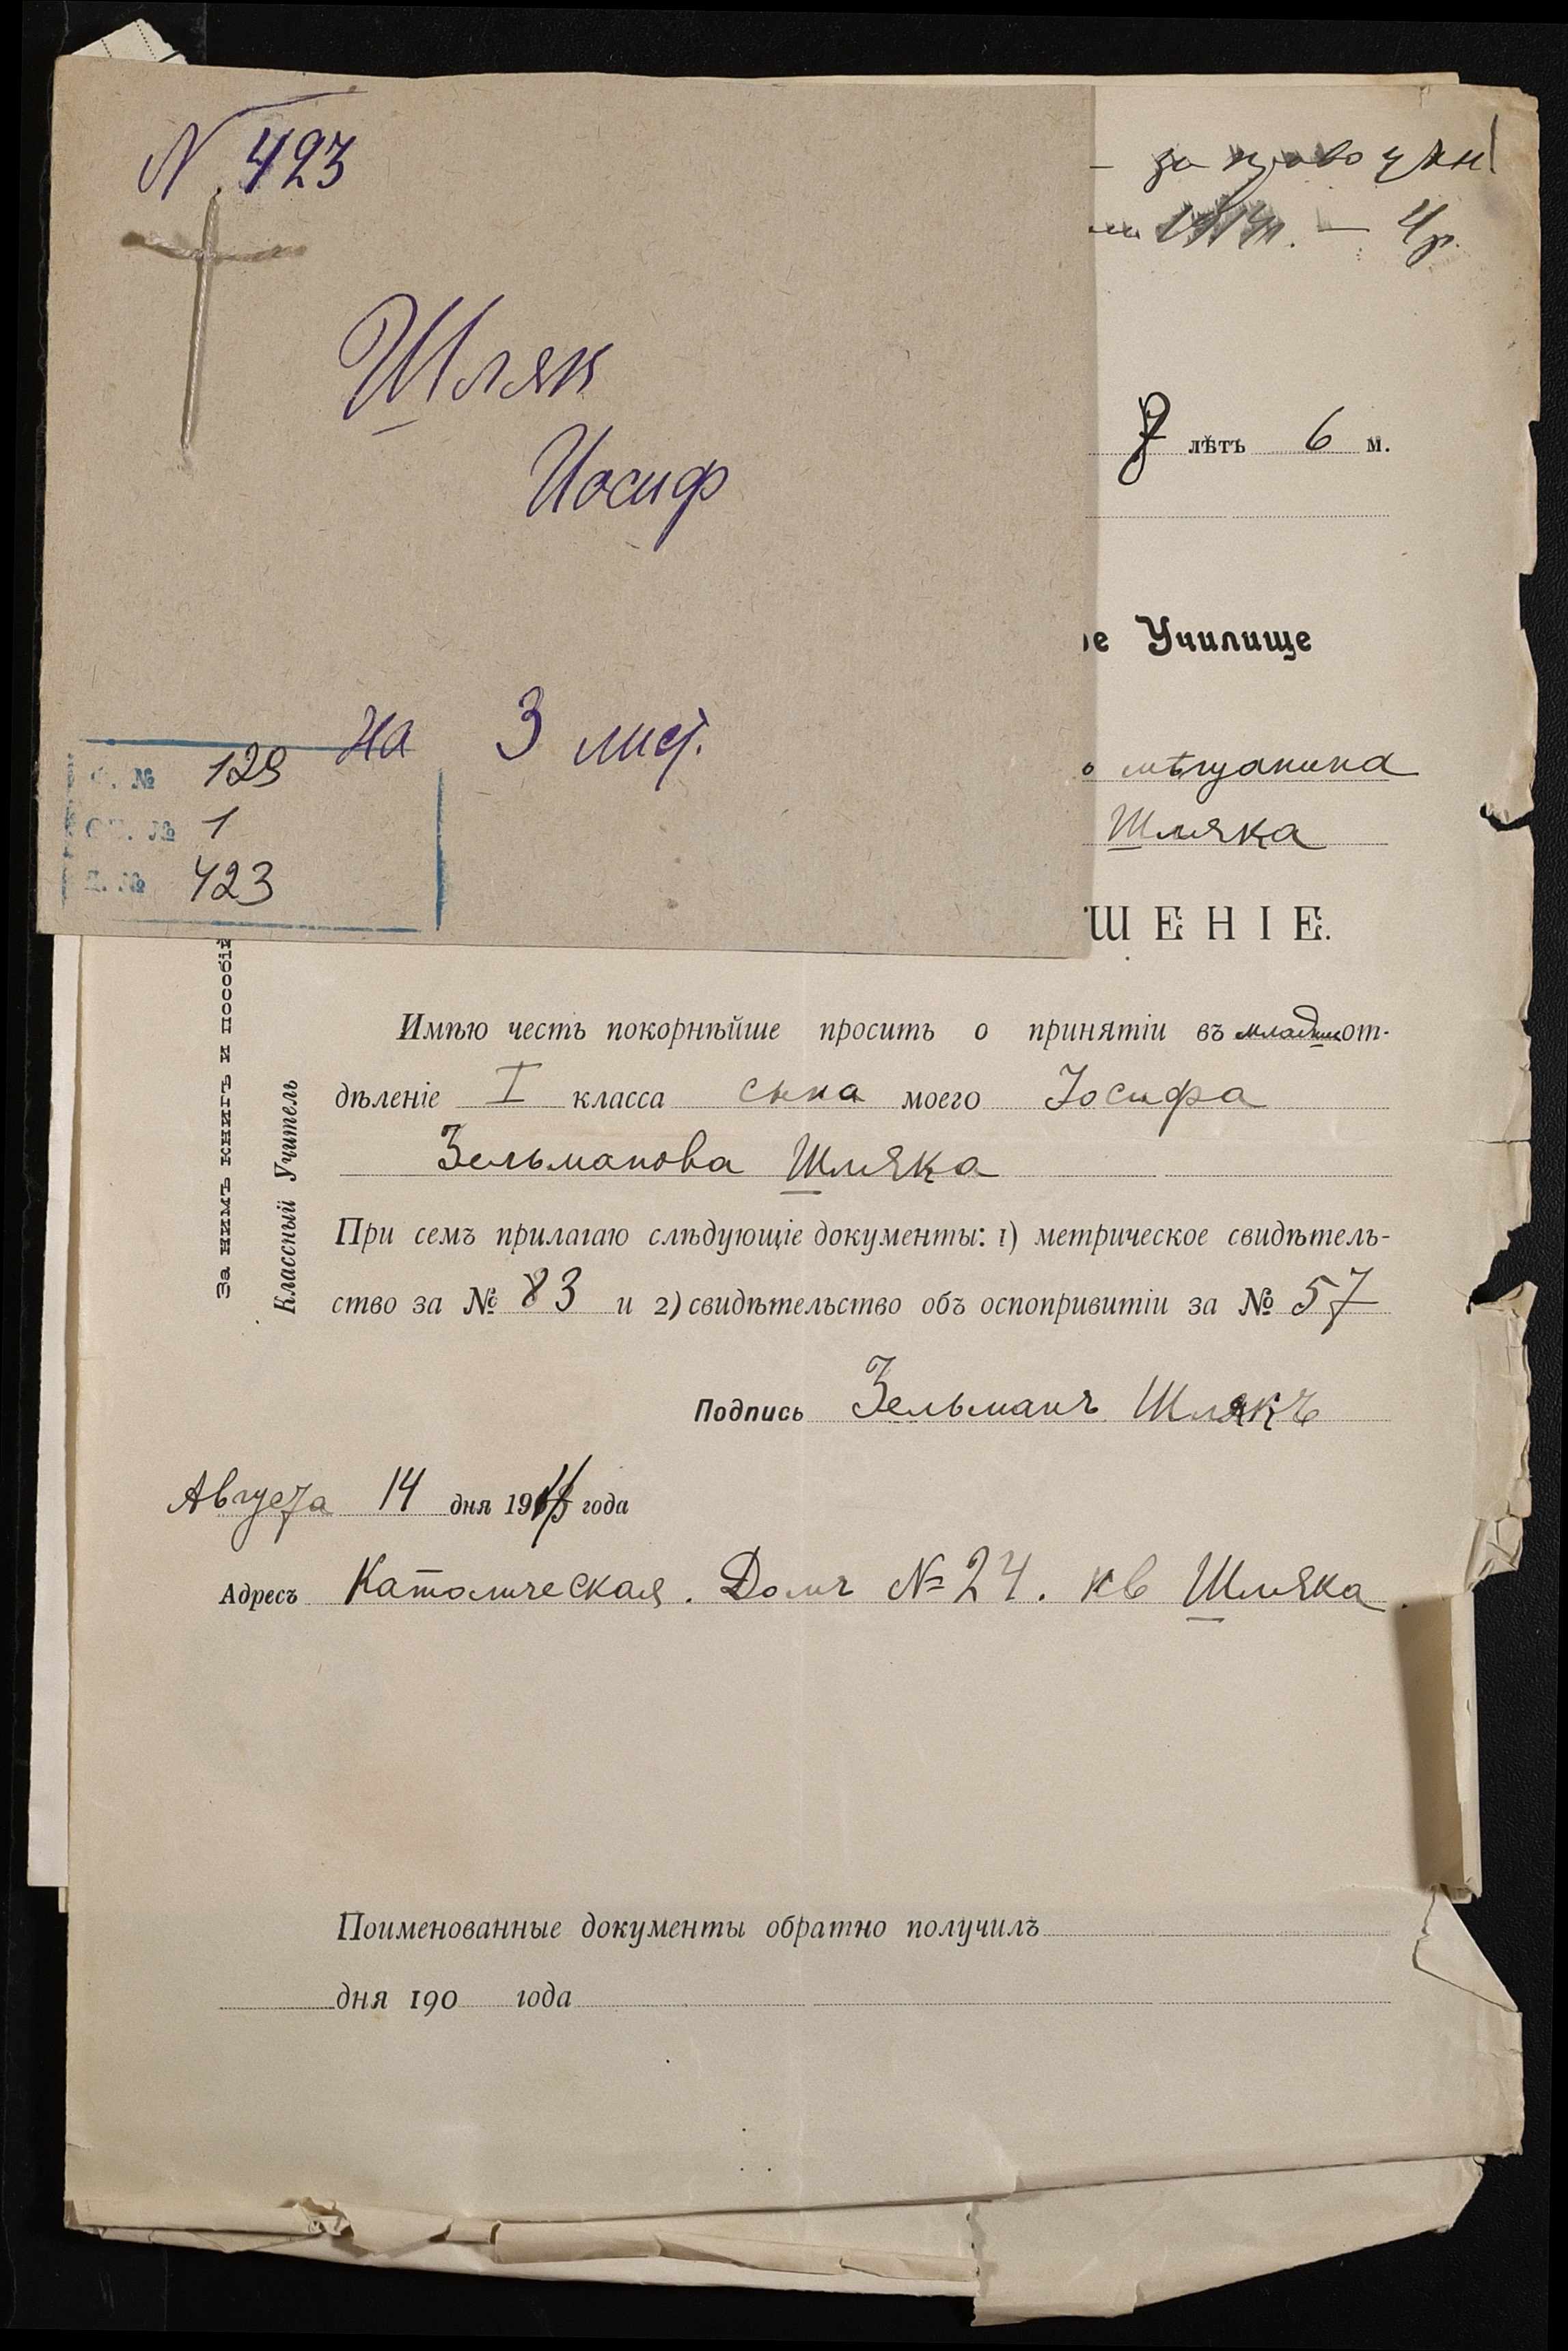 N. 423
Шляк
Иосиф
на 3 лист.
Ф. № 129
Оп. № 1
Д. № 423
за право учен
1914 г. — 4 р.
7 лѣтъ 6 м.
ое Училище
о мѣщанина
Шляка
ШЕНІЕ.
За нимъ книгъ и пособій
Классный Учитель
Имѣю честь покорнѣйше просить о принятіи въ младш от-
дѣленіе I класса сына моего Іосифа
Зельманова Шляка
При семъ прилагаю слѣдующіе документы: 1) метрическое свидѣтель-
ство за № 83 и 2) свидѣтельство объ оспопривитіи за № 57
Подпись Зельманъ Шлякъ
Августа 14 дня 19 года
Адресъ Католическая. Домъ № 24. кв Шляка
Поименованные документы обратно получилъ
дня 190 года